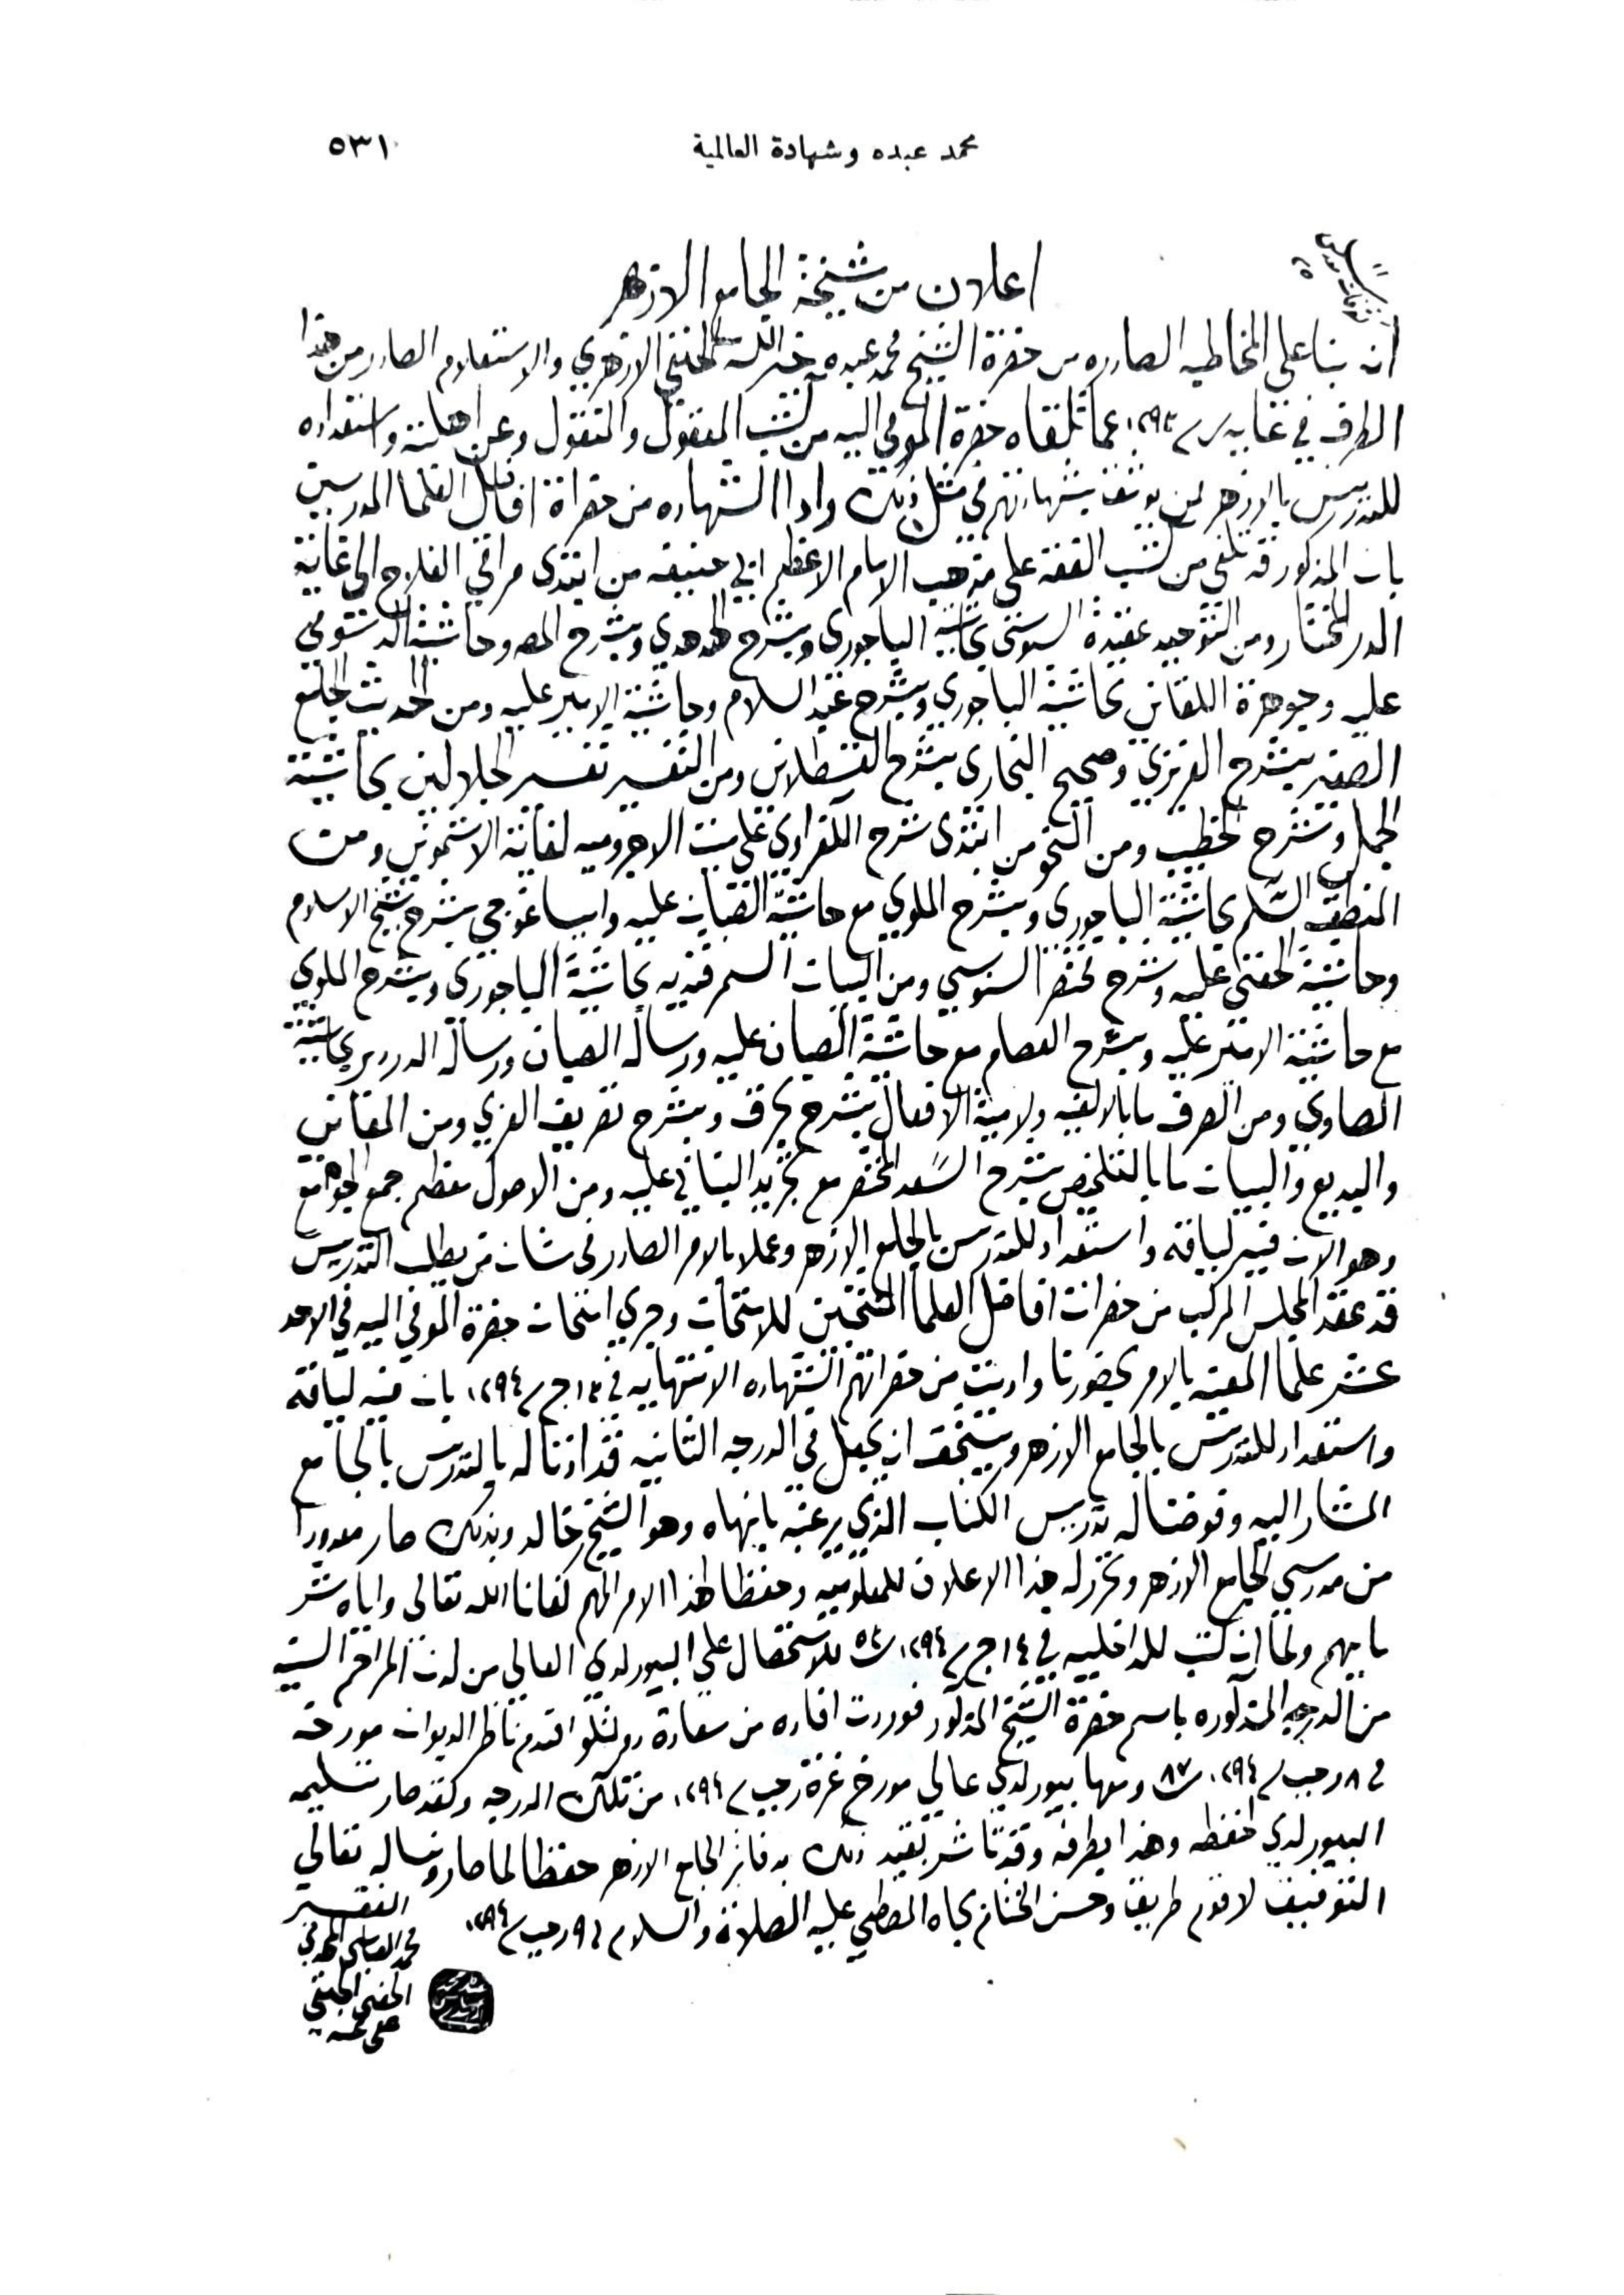 محمد عبده وشهادة العالمية
٥٣١
اعلان من مشيخة الجامع الازهر
انه بنا على المخاطبه الصادره من حضرة الشيخ محمد عبده خير الله الحنفي الازهري والاستعلام الصادر من هذا
الطرف في غايه ر سـ ١٢٩٣ عما تلقاه حضرة المومي اليه من كتب المعقول والمنقول وعن اهلته واستعداده
للتدريس بالازهر لمن يوثق بشهادتهم في مثل ذلك وادا الشهاده من حضراة افاضل العلما المدرسين
بان المذكور قد تلقي من كتب الفقه على مذهب الامام الاعظم ابي حنيفه من ابتدى مراقي الفلاح الى غاية
الدر المختار ومن التوحيد عقيدة السنوسي بحاشية الباجوري وبشرح الهدهدي وبشرح المص وحاشية الدسوقي
عليه وجوهرة اللقاني بحاشية الباجوري وبشرح عبد السلام وحاشية الامير عليه ومن الحديث الجامع
الصغير بشرح العزيزي وصحيح البخاري بشرح القسطلاني ومن التفسير تفسير الجلالين بحاشية
الجمل وشرح الخطيب ومن النحو من ابتدى شرح الكفراوي على متن الاجروميه لغاية الاشموني ومن
المنطق السلم بحاشية الباجوري وبشرح الملوي مع حاشية الصبان عليه وايساغوجي بشرح شيخ الاسلام
وحاشية الحفني عليه وشرح مختصر السنوسي ومن البيان السمرقنديه بحاشية الباجوري وبشرح الملوي
مع حاشية الامير عليه وبشرح العصام مع حاشية الصبان عليه ورسالة الصبان ورسالة الدردير بحاشية
الصاوي ومن الصرف ما بالالفيه ولامية الافعال بشرح بحرق وبشرح تصريف العزي ومن المعاني
والبديع والبيان ما بالتلخيص بشرح السعد المختصر مع تجريد البناني عليه ومن الاصول معظم جمع الجوامع
وهو الان فيه لياقه واستعداد للتدريس بالجامع الازهر وعملا بالامر الصادر في شان من يطلب التدريس
قد عقد المجلس المركب من حضرات افاضل العلما المنتخبين للامتحان وجري امتحان حضرة المومي اليه في الاحد
عشر علما المعينه بالامر بحضورنا واديت من حضراتهم الشهاده الانتهايه في ١٣ ج سـ ١٢٩٤ بان فيه لياقه
واستعداد للتدريس بالجامع الازهر ويستحق ان يجعل في الدرجه الثانيه قد اذنا له بالتدريس بالجامع
المشار اليه وفوضنا له تدريس الكتاب الذي يرغبه بانهاه وهو الشيخ خالد وبذلك صار معدودا
من مدرسي الجامع الازهر وتحرر له هذا الاعلان للمعلوميه وحفظا لهذا الامر المهم كفانا الله تعالى واياه شر
ما يهم ولما ان كتب للداخليه في ١٤ ج سـ ١٢٩٤ للاستحصال علي البيورلدي العالي من لدن المراحم السنيه
من الدرجه المذكوره باسم حضرة الشيخ المذكور فوردت افاده من سعادة دولتلو افندم ناظر الديوان مورخه
في ٨ رجب سـ ١٢٩٤ ومعها بيورلدي عالي مورخ غرة رجب سـ ١٢٩٤ من تلك الدرجه وكقد صار تسليمه
البيورلدي لحفظه وهذا بطرفه وقد تاشر بقيد ذلك بدفاتر الجامع الازهر حفظا لما صار ونساله تعالي
التوفيق لاقوم طريق وحسن الختام بجاه المصطفي عليه الصلاة والسلام في ٩ رجب سـ ١٢٩٤
الفقير
محمد العباسي المهدي
الحفني الحنفي
عفي عنه